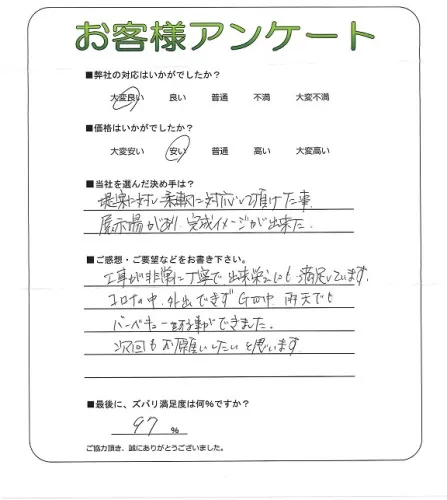 お客様アンケート
■弊社の対応はいかがでしたか？
大変良い 良い 普通 不満 大変不満
■価格はいかがでしたか？
大変安い 安い 普通 高い 大変高い
■当社を選んだ決め手は？
提案に対し柔軟に対応して頂けた事、
展示場があり、完成イメージが出来た．
■ご感想・ご要望などをお書き下さい。
工事が非常に丁寧で出来栄えにも満足しています．
コロナの中、外出できずGW中 雨天でも
バーベキューをする事ができました．
次回もお願いしたいと思います．
■最後に、ズバリ満足度は何%ですか？
97 %
ご協力頂き、誠にありがとうございました。